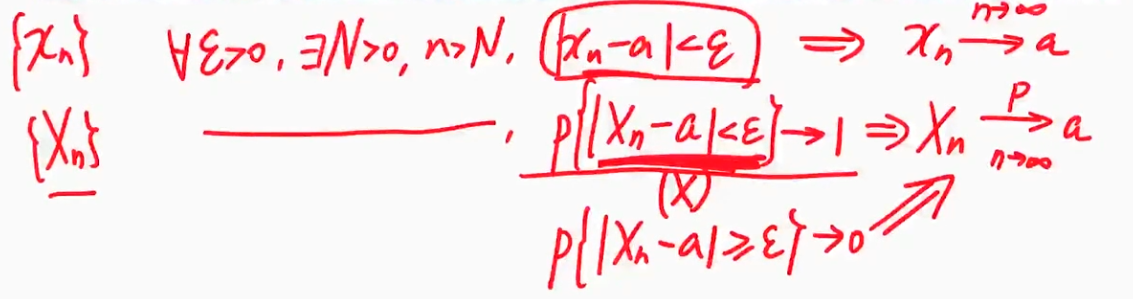 {xₙ} ∀ε>0, ∃N>0, n>N, |xₙ-a|<ε ⇒ xₙ →(n→∞) a
{Xₙ} ————, P{|Xₙ-a|<ε}→1 ⇒ Xₙ →(P, n→∞) a
(X)
P{|Xₙ-a|≥ε}→0